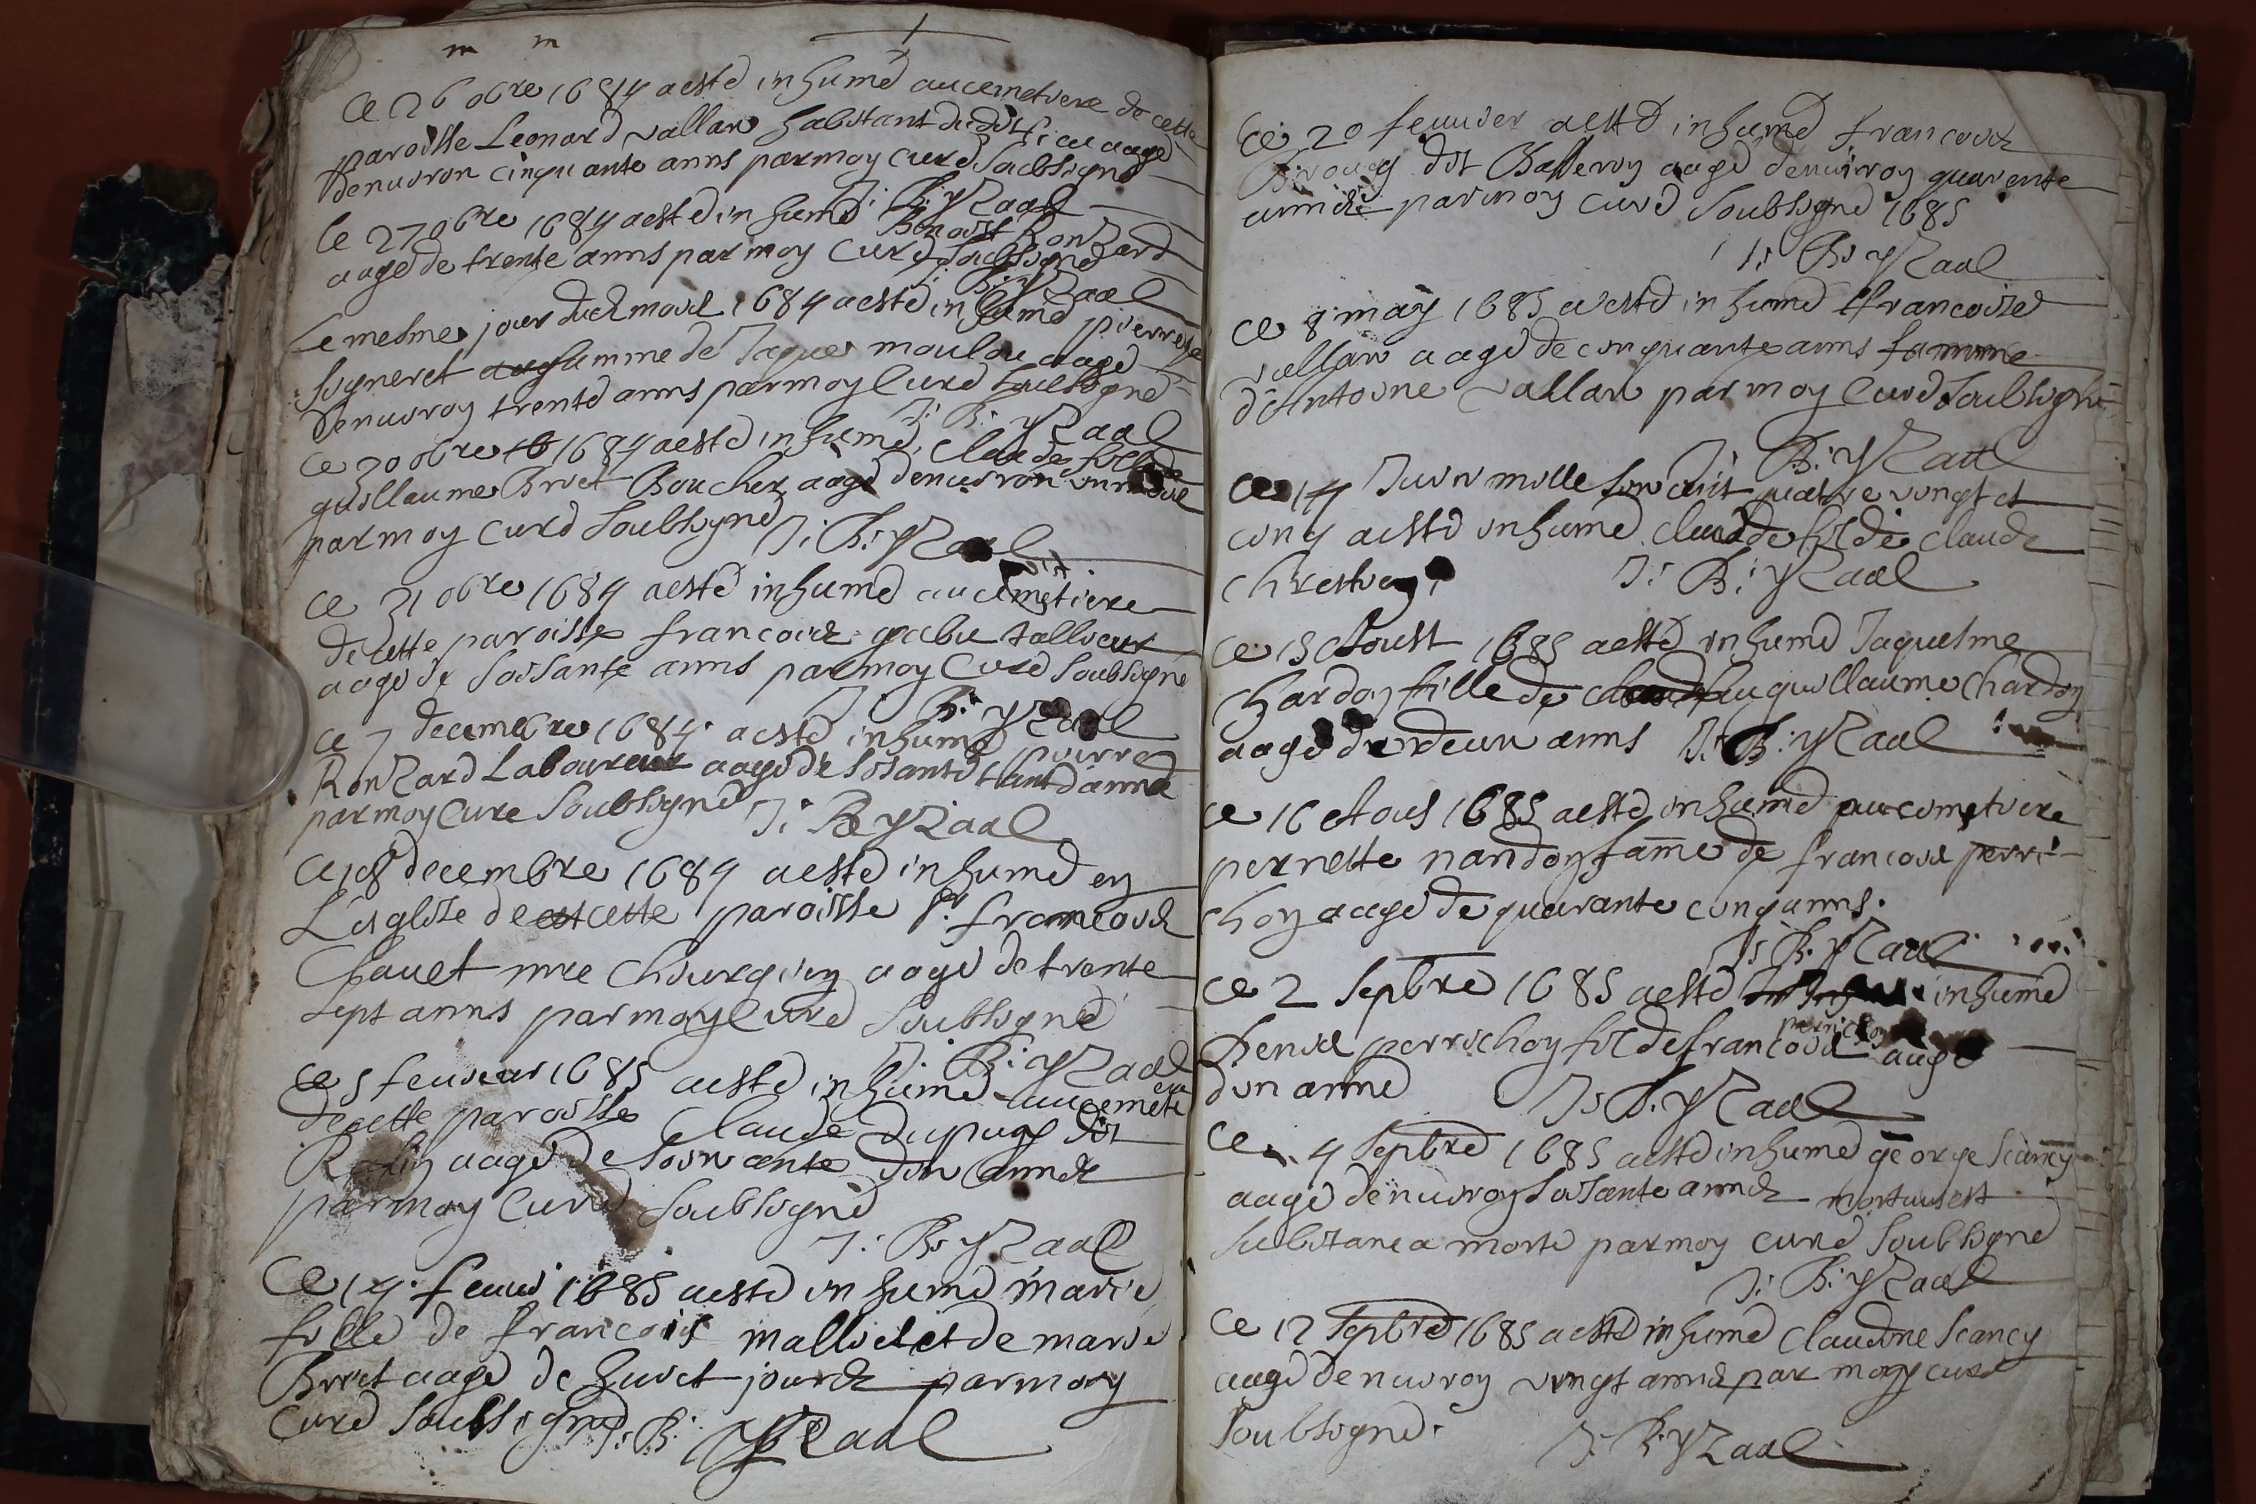 Ce 26 obre 1684 a esté inhumé au cemetiere de cette
paroisse Leonard vallan habitant dudit lieu aagé
denviron cinquante anns par moy curé soubsigné
J: B: yZaal
Ce 27 obre 1684 a esté inhumé Benoist Ronzard
aagé de trente anns par moy curé soubsigné
J: B: yZaal
Le mesme jour dud mois 1684 a esté inhumé pierrette
signeret famme de Jaques moulou aagé
denviroy trente anns par moy curé soubsigné
J: B: yZaal
Ce 30 obre 1684 a esté inhumé Claude fils de
guillaume Brivet Boucher aagé denviron un mois
par moy curé soubsigné J: B: yZaal
Ce 31 obre 1684 a esté inhumé au cemetiere
de cette paroisse francois tallieur
aagé de soisante anns par moy curé soubsigné
J: B: yZaal
Ce 7 decembre 1684 a esté inhumé pierre
Ronzard Laboureur aagé de soisante tant d'anné
par moy cure soubsigné J: B: yZaal
Ce 18 decembre 1684 a esté inhumé en
L'esglise de cette paroisse Sr francois
Chavet mre chirurgien aagé de trente
sept anns par moy curé soubsigné
J: B: yZaal
Ce 5 feuvrier 1685 a esté inhumé au cemetiere
de cette paroisse Claude Dupuy dit
aagé de soixante d'un année
par moy curé soubsigné
J: B: yZaal
Ce 14 feuvr 1685 a esté inhumé marie
fille de francois malliet et de marie
Brivet aagé de huict jours par moy
curé soubsigné J: B: yZaal
Ce 20 feuvrier a esté inhumé francois
dit Balleroy aagé denviroy quarente
année par moy curé soubsigné 1685
J: B: yZaal
Ce 8 may 1685 a esté inhumé francoise
vallan aagé de cinquante anns famme
d'Antoine vallan par moy curé soubsigné
J: B: yZaal
Ce 14 Juin mille six cent quatre vingt et
cinq a esté inhumé claude fil de claude
Chrestien J: B: yZaal
Ce 15 Aoust 1685 a esté inhumé Jaquesme
Chardoy fille de guillaume Chardoy
aagé de deux anns J: B: yZaal
Ce 16 Aous 1685 a esté inhumé au cemetiere
pernette nandoy fame de francois perri-
choy aagé de quarante cinq anns.
J: B: yZaal
Ce 2 sepbre 1685 a esté inhumé
Denis perrichoy fil de francois perrichoy aagé
d'un anné J: B: yZaal
Ce 4 sepbre 1685 a esté inhumé george Sciancy
aagé denviroy soisante année mortuus est
substanea morte par moy curé soubsigné
J: B: yZaal
Ce 12 sepbre 1685 a esté inhumé Claudine Sciancy
aagé denviroy vingt année par moy curé
soubsigné. J: B: yZaal